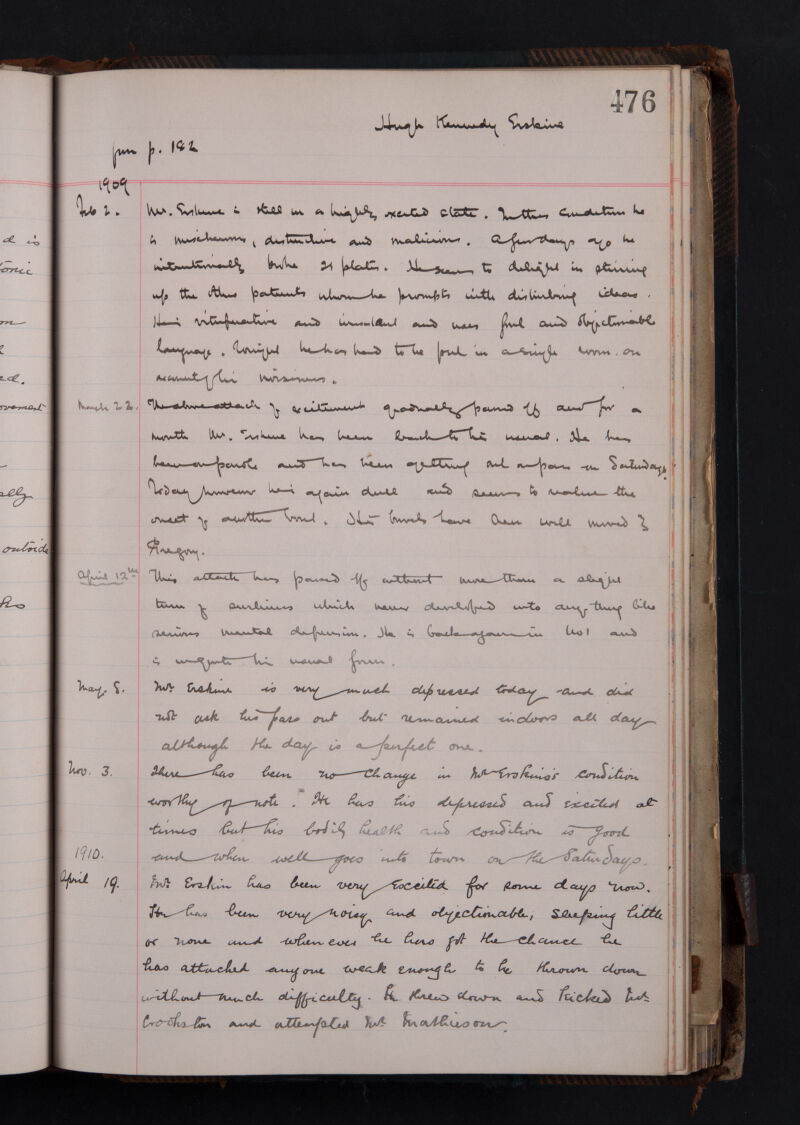 476
Hugh Kennedy Erskine
from p. 182
1909
Feb 2. Mr. Erskine is still in a highly excited state. In this condition he
is mischievous, destructive and malicious. A few days ago he
intentionally broke 21 plates. He seems to delight in stirring
up the other patients whom he prompts with disturbing ideas.
He is vituperative and insolent and uses foul and objectionable
language. Tonight he has had to be put in a single room on
account of his noisiness.
March 22. The above attack of excitement gradually passed off and for a
month Mr. Erskine has been back to his usual. He has
been on parole and has been getting out on pass on Saturdays.
Today however he is again dull and seems to realise the
onset of another bout. His bowels have been well moved by
Gregory.
April 12th This attack has passed off without more than a slight
turn of surliness which never developed into anything like
serious mental depression. He is back again in No 1 and
is in quite his usual form.
May. 8. Mr Erskine is very much depressed today and did
not ask his pass out but remained indoors all day
although the day is a perfect one.
Nov. 3. There has been no change in Mr Erskine's condition
worthy of note. He has his depressed and excited at
times but his bodily health and condition is good
1910. and when well goes into town on the Saturdays.
April 19. Mr Erskin has been very excited for some days now.
He has been very noisy and objectionable, sleeping little
or none and whenever he has got the chance he
has attacked anyone weak enough to be thrown down
without much difficulty. He threw down and kicked Mr
Crookston and attempted Mr Mathieson.